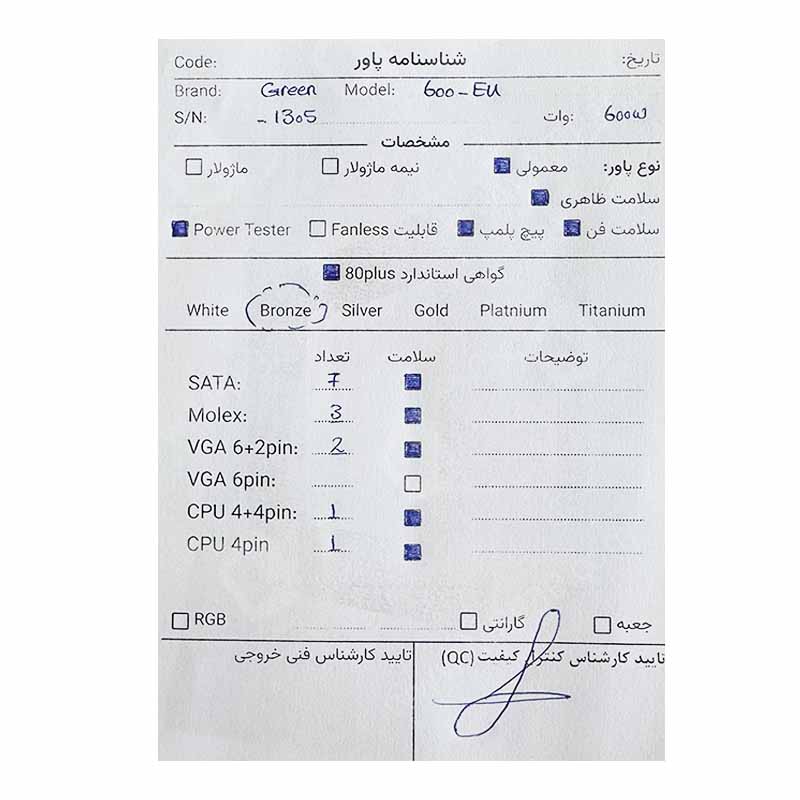 Code: شناسنامه پاور تاریخ:
Brand: Green Model: 600-EU
S/N: -1305 وات: 600W
مشخصات
نوع پاور: معمولی نیمه ماژولار ماژولار
سلامت ظاهری
سلامت فن پیچ پلمپ قابلیت Fanless Power Tester
گواهی استاندارد 80plus
White Bronze Silver Gold Platnium Titanium
تعداد سلامت توضیحات
SATA: 7
Molex: 3
VGA 6+2pin: 2
VGA 6pin:
CPU 4+4pin: 1
CPU 4pin 1
RGB گارانتی جعبه
تایید کارشناس کنترل کیفیت (QC) تایید کارشناس فنی خروجی